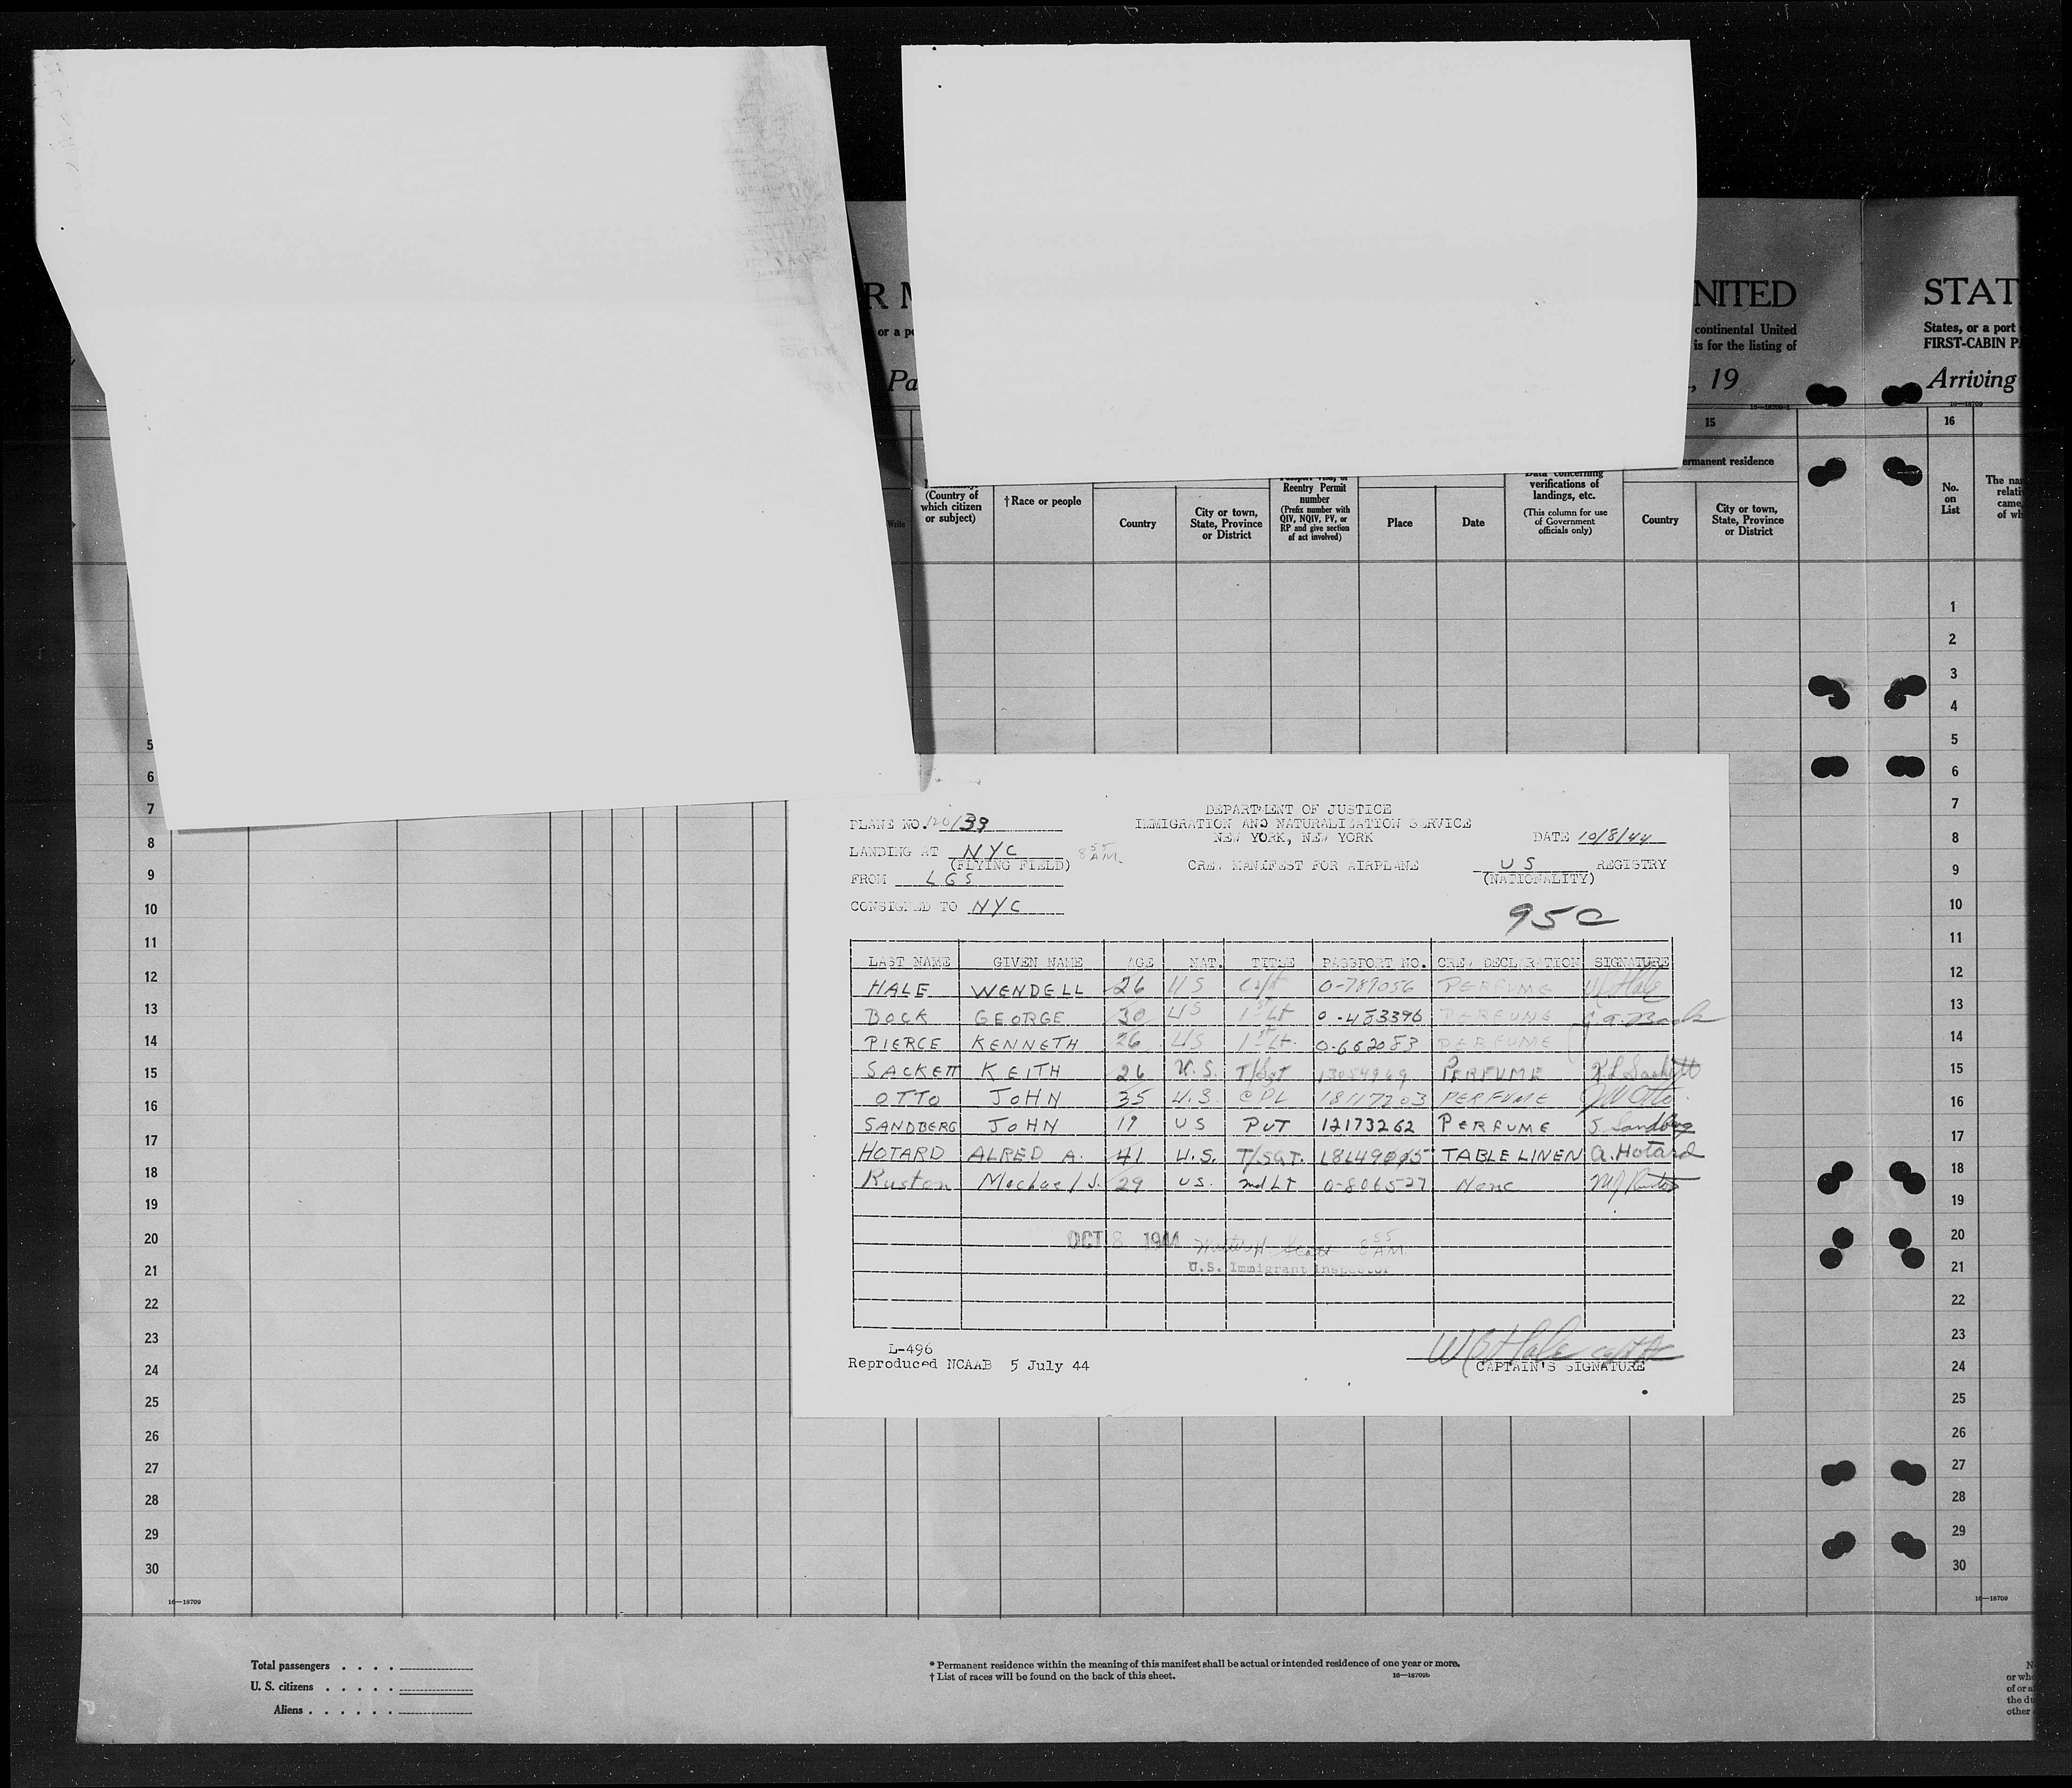 R M
NITED
STAT
or a po
continental United
is for the listing of
States, or a port
FIRST-CABIN P
Pa
, 19
Arriving
15
16
ermanent residence
(Country of
which citizen
or subject)
†Race or people
Country
City or town,
State, Province
or District
Reentry Permit
number
(Prefix number with
QIV, NQIV, PV, or
RP and give section
of act involved)
Place
Date
Data concerning
verifications of
landings, etc.
(This column for use
of Government
officials only)
Country
City or town,
State, Province
or District
No.
on
List
The na
relati
came
of wh
1
2
3
4
5 5
6 6
7 7
8 8
9 9
10 10
11 11
12 12
13 13
14 14
15 15
16 16
17 17
18 18
19 19
20 20
21 21
22 22
23 23
24 24
25 25
26 26
27 27
28 28
29 29
30 30
DEPARTMENT OF JUSTICE
IMMIGRATION AND NATURALIZATION SERVICE
NEW YORK, NEW YORK
PLANE NO. 120/33
DATE 10/8/44
LANDING AT NYC 8 55 AM
(FLYING FIELD)
CREW MANIFEST FOR AIRPLANE US REGISTRY
(NATIONALITY)
FROM LGS
CONSIGNED TO NYC
95C
LAST NAME GIVEN NAME AGE NAT. TITLE PASSPORT NO. CREW DECLARATION SIGNATURE
HALE WENDELL 26 US Capt 0-789056 PERFUME W Hale
BOCK GEORGE 30 US 1st Lt 0-483396 PERFUME
PIERCE KENNETH 26 US 1st Lt. 0-662083 PERFUME
SACKETT KEITH 26 U.S. T/Sgt 13054969 PERFUME K L Sackett
OTTO JOHN 35 U.S. CPL 18117203 PERFUME J W Otto
SANDBERG JOHN 19 US PVT 12173262 PERFUME J. Sandberg
HOTARD ALRED A. 41 U.S. T/SGT. TABLE LINEN A. Hotard
Ruston Michael J. 29 US. 2nd LT 0-806527 None M J Ruston
OCT 8 1944 Walter H Scott 8 55 AM
U.S. Immigrant Inspector
L-496
Reproduced NCAAB 5 July 44
CAPTAIN'S SIGNATURE
16—18709
16—18709
Total passengers . . . .
U. S. citizens . . . . .
Aliens . . . . . .
* Permanent residence within the meaning of this manifest shall be actual or intended residence of one year or more.
† List of races will be found on the back of this sheet.
16—18709b
N
or wh
of or a
the du
other